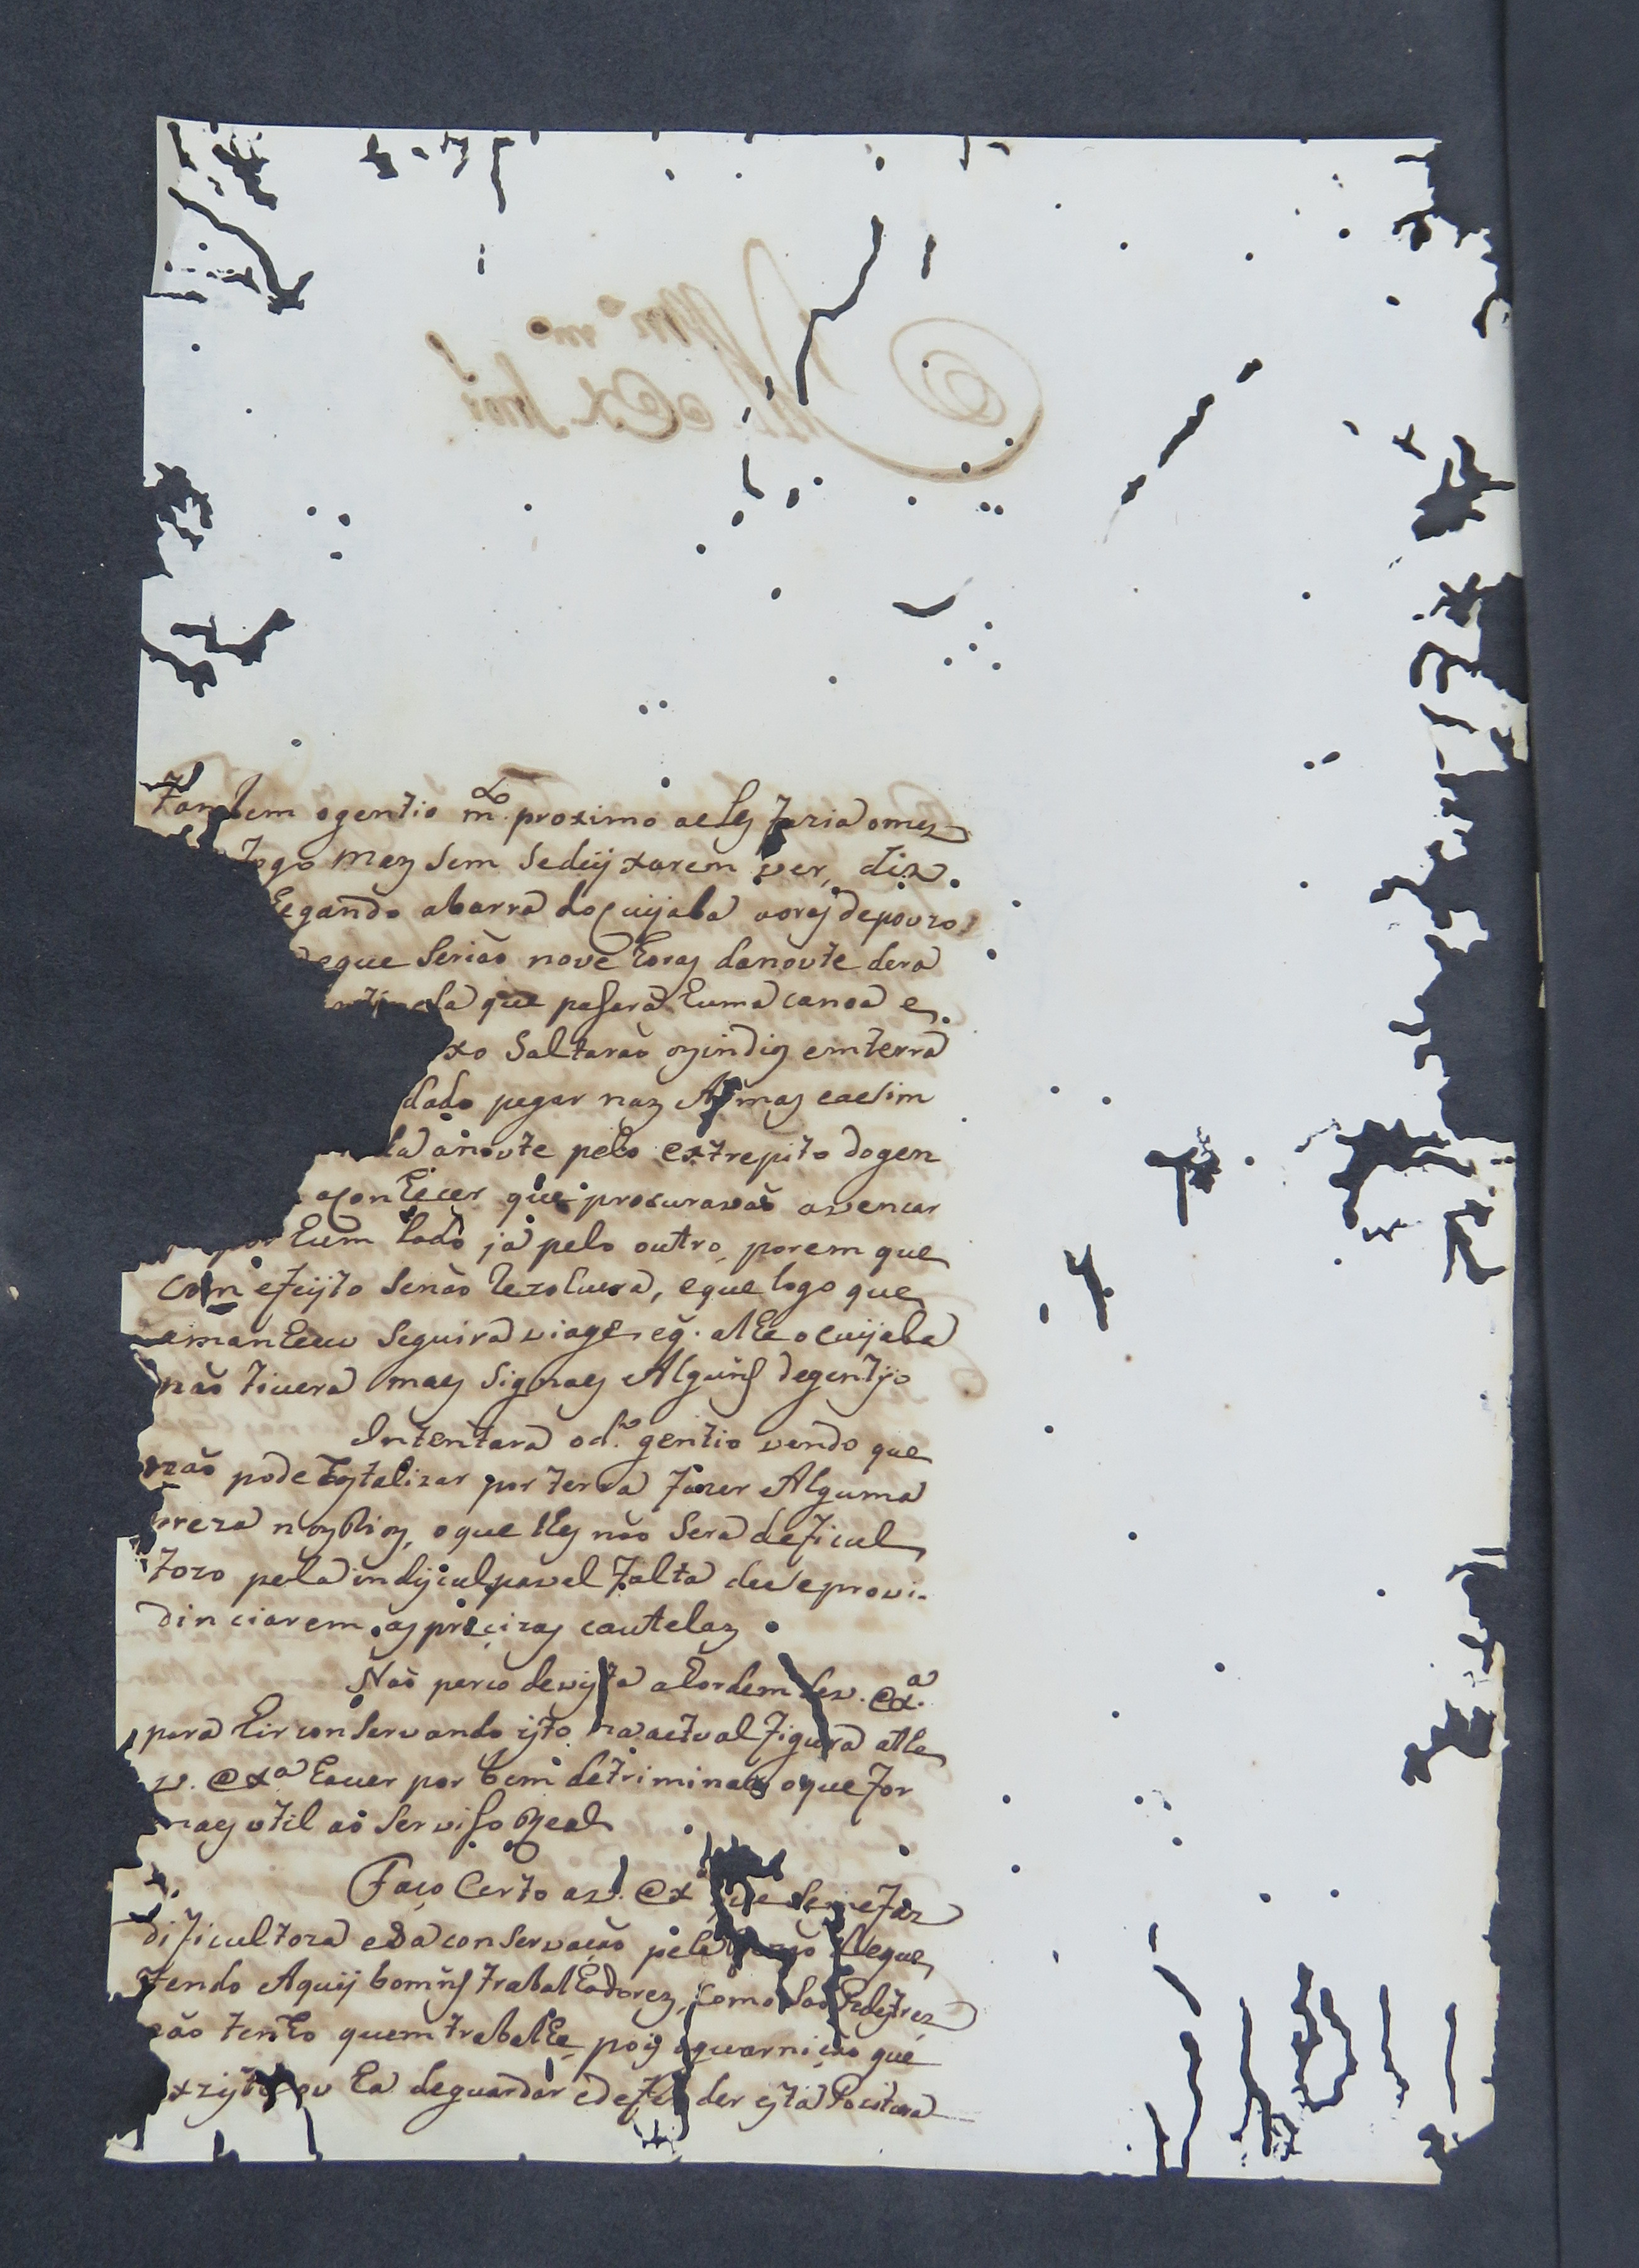 Tambem ogentio m.to proximo aelles fazia omez
fogo mas sem sedeijxarem ver, diz.
hegando abarra do Cuijaba aoras depouzo
eque serião nove horas danoute dera
ntinela que pasara huma canoa e.
xo saltarão osindios emterra
dado pegar nas Armas easim
la anoute pelo extrepito dogen
aconhecer que procuravão avencar
por hum lado ja pelo outro, porem que
com efeijto senão rezolvera, eque logo que
amanheceu seguira viage, eq. athe o Cuijaba
não tivera mais signaes Alguñs degentijo
Intentara od.o gentio vendo que
não pode ostalizar por terra fazer Alguma
preza nos Rios, oque lhes não sera deficul
tozo pela indijculpavel falta dese provi.
dinciarem as precizas cautelas
Não perco devijsta a hordem de v. Exa.
para hir conservando isto na actual figura athe
v. Exa haver por bem detriminar oque for
mais util ao serviso Real
Faço Certo a v. Exa que seme faz
dificultoza eda conservação pela rezão deque
tendo Aquij bomñs trabalhadores, como são Pedestres
não tenho quem trabalhe, pois aguarnição que
exziste ou ha deguardar edefender esta Fouctura
Ill.mo e Ex.mo Snr.